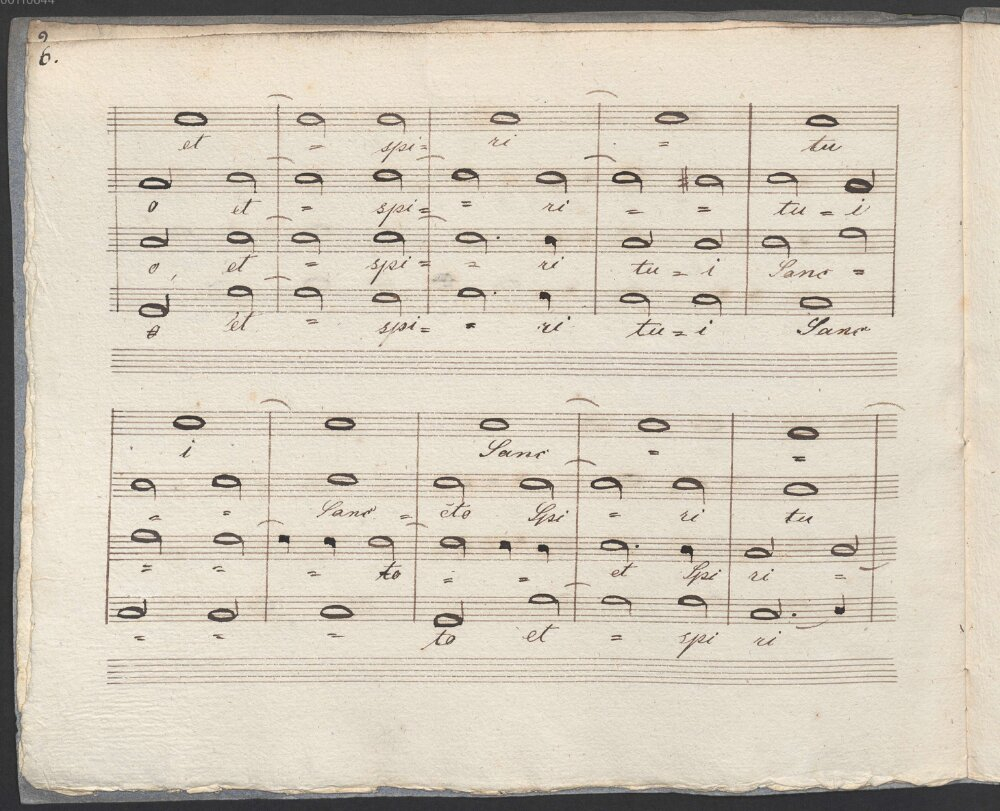 6.
et = spi= ri = tu
o et = spi= = ri = = tu = i
o, et = spi= = ri tu = i Sanc =
o et = spi= = ri tu = i Sanc
i = Sanc = =
= = Sanc = cto Spi = ri tu
= = = to = = et Spi ri =
= = = to et = spi ri